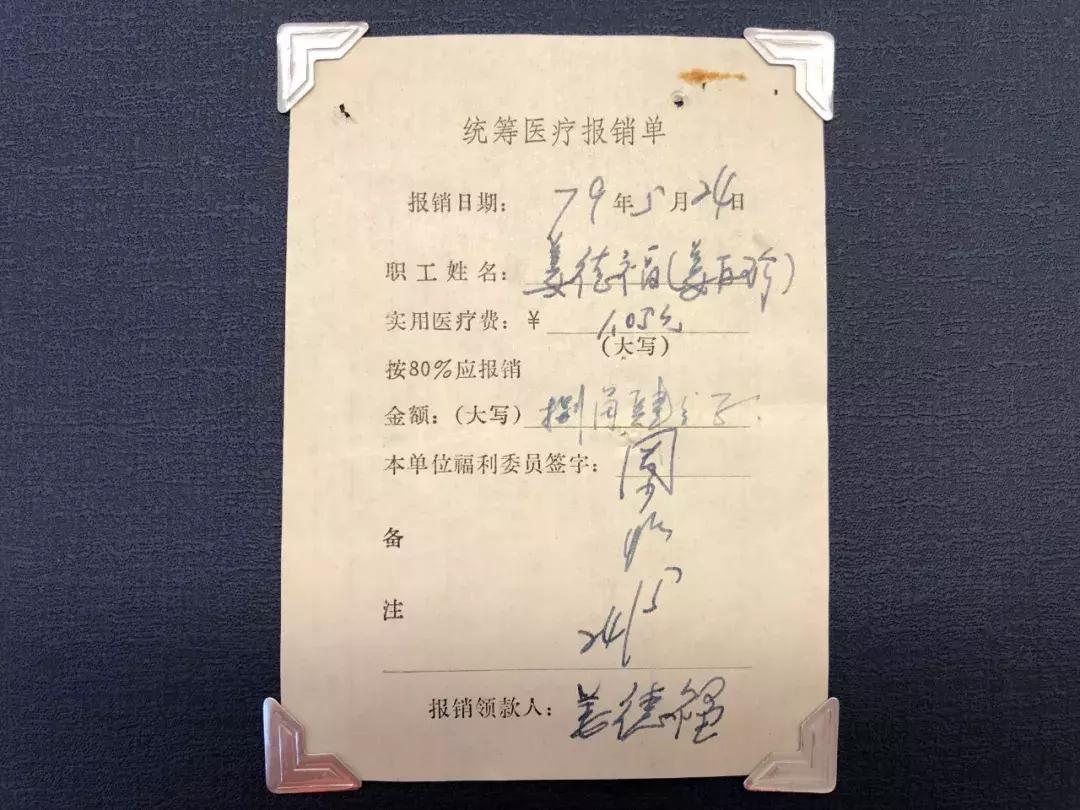 统筹医疗报销单
报销日期：79年5月24日
职工姓名：姜德福(姜百珍)
实用医疗费：¥1.05元
(大写)
按80%应报销
金额：(大写)捌角肆分正
本单位福利委员签字：
备
注
24/5
报销领款人：姜德福